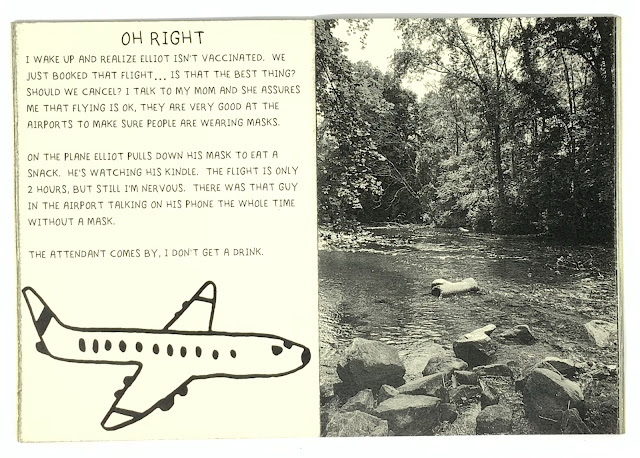 OH RIGHT
I WAKE UP AND REALIZE ELLIOT ISN'T VACCINATED. WE
JUST BOOKED THAT FLIGHT... IS THAT THE BEST THING?
SHOULD WE CANCEL? I TALK TO MY MOM AND SHE ASSURES
ME THAT FLYING IS OK, THEY ARE VERY GOOD AT THE
AIRPORTS TO MAKE SURE PEOPLE ARE WEARING MASKS.
ON THE PLANE ELLIOT PULLS DOWN HIS MASK TO EAT A
SNACK. HE'S WATCHING HIS KINDLE. THE FLIGHT IS ONLY
2 HOURS, BUT STILL I'M NERVOUS. THERE WAS THAT GUY
IN THE AIRPORT TALKING ON HIS PHONE THE WHOLE TIME
WITHOUT A MASK.
THE ATTENDANT COMES BY, I DON'T GET A DRINK.